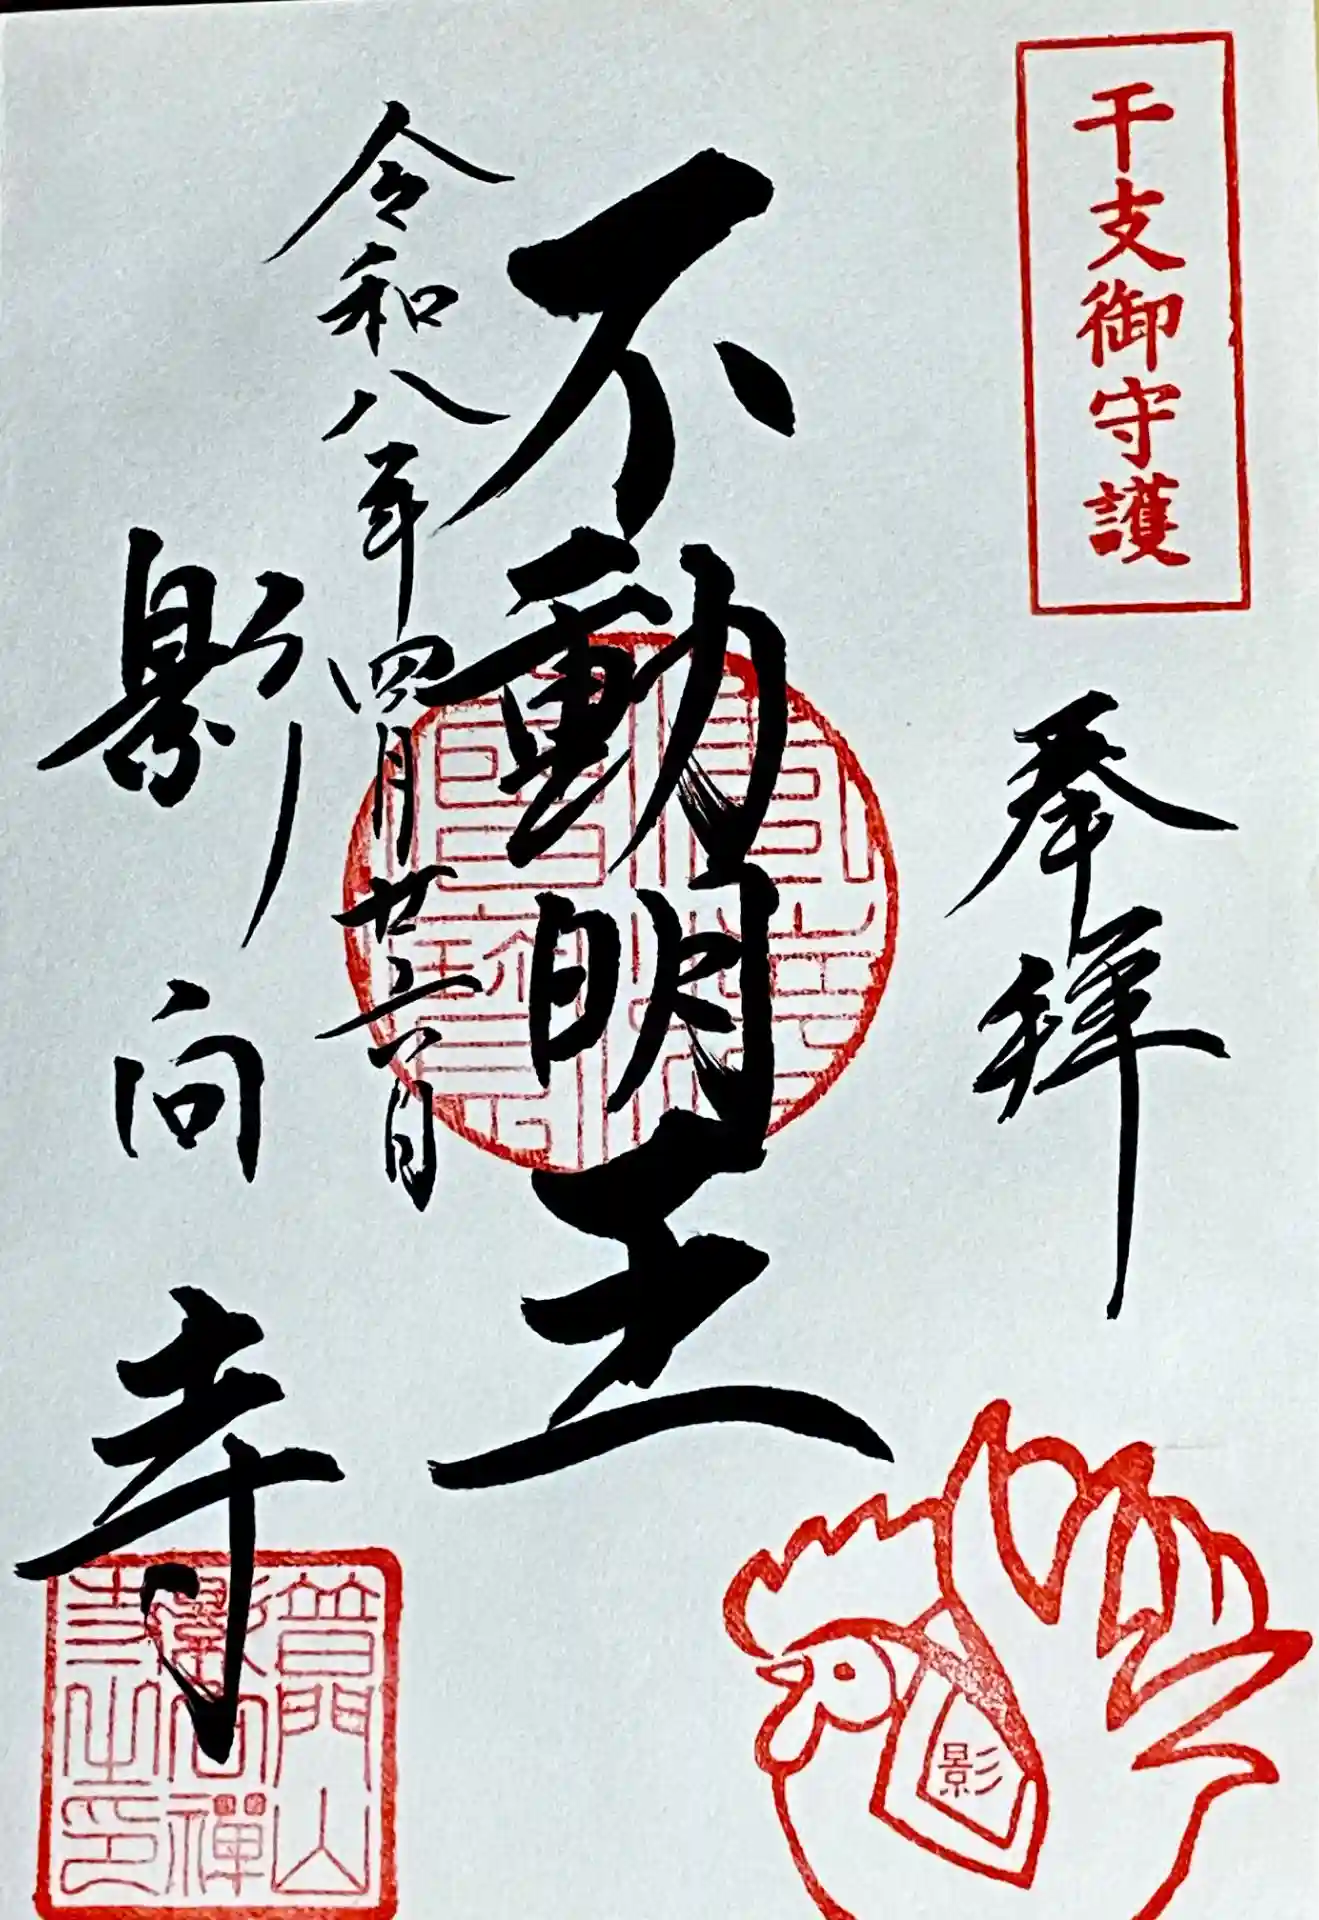 干支御守護
奉拝
不動明王
令和八年四月廿六日
影向寺
普門山
影向禅
寺之印
影